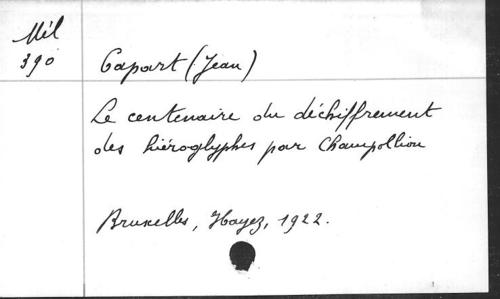 Mél
390
Capart (Jean)
Le centenaire du déchiffrement
des hiéroglyphes par Champollion
Bruxelles, Hayez, 1922.